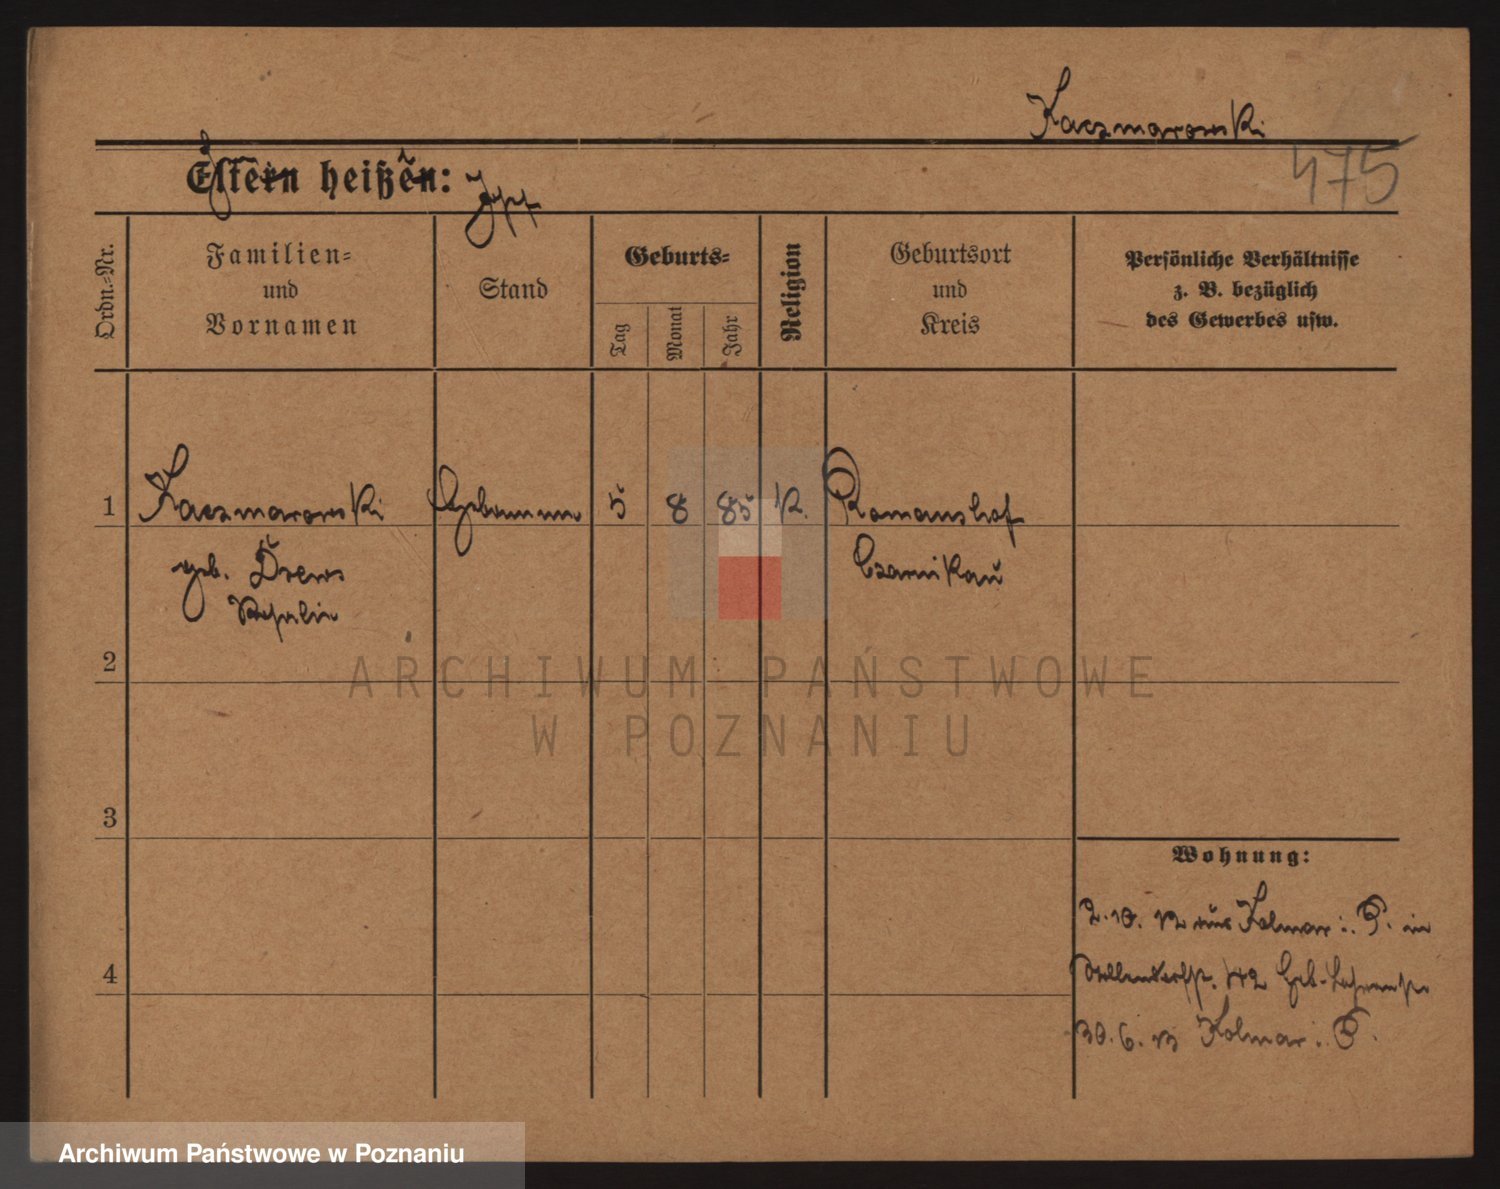 Kaczmarowski
475
Eltern heißen:
Ordn.-Nr.
Familien- und Vornamen
Stand
Geburts-
Tag
Monat
Jahr
Religion
Geburtsort und Kreis
Persönliche Verhältnisse
z. B. bezüglich
des Gewerbes usw.
1 Kaczmarowski Hebamme 5 8 85 K. Romanshof
geb. Drews Czarnikau
2
ARCHIWUM PAŃSTWOWE
W POZNANIU
3
Wohnung:
2.10.12 aus Kolmar i. P. in
4
30.6.13 Kolmar i. P.
Archiwum Państwowe w Poznaniu